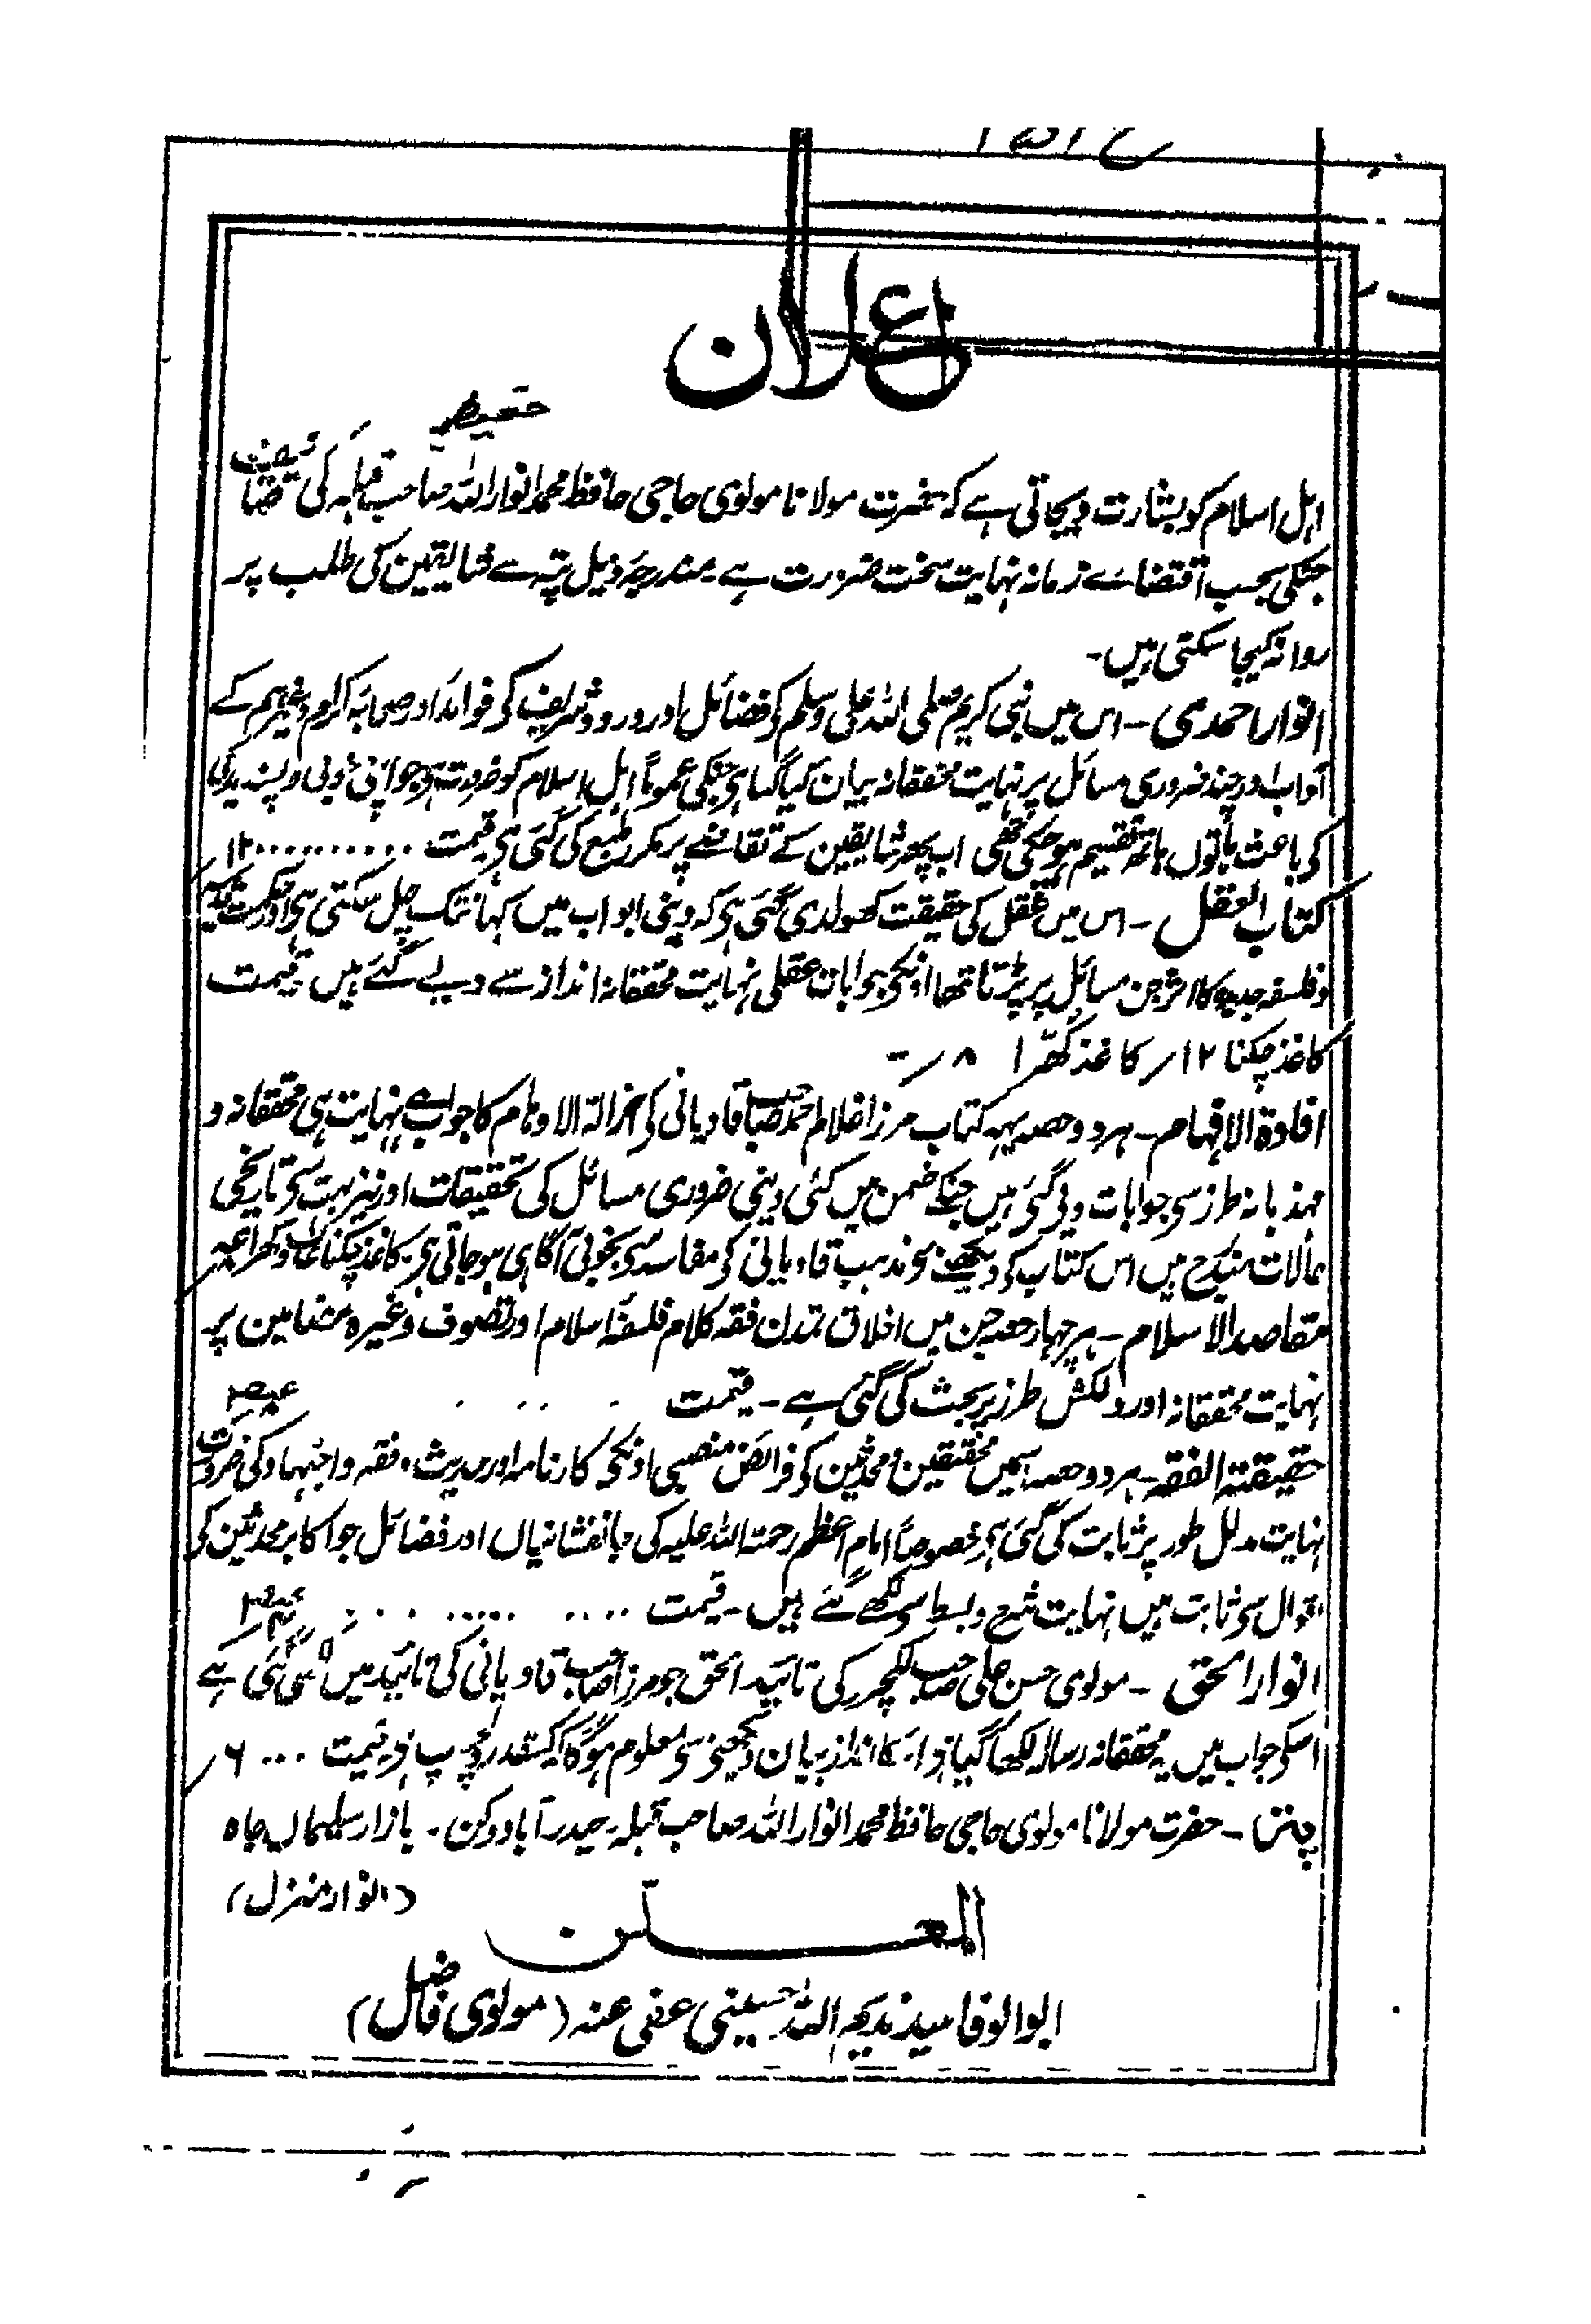 اعلان
اہل اسلام کو بشارت دیجاتی ہے کہ حضرت مولانا مولوی حاجی حافظ محمد انوار اللہ صاحب قبلہ کی تصانیف
جنکی بحسب اقتضائے زمانہ نہایت سخت ضرورت ہے مندرجۂ ذیل پتہ سے شایقین کی طلب پر
روانہ کیجا سکتی ہیں۔
انوار احمدی ۔ اس میں نبی کریم صلی اللہ علی وسلم کو فضائل اور درود شریف کی فوائد اور صحابہ کرام وغیرہم کے
آداب اور چند ضروری مسائل پر نہایت محققانہ بیان کیا گیا ہی جنکی عموماً اہل اسلام کو ضرورت ہی جو اپنی خوبی و پسندیدگی
کی باعث ہاتوں ہاتھ تقسیم ہو چکی تھی اب پھر شایقین کے تقاضے پر مکرر طبع کی گئی ہی قیمت .......... ۱۲
کتاب العقل ۔ اس میں عقل کی حقیقت کھولدی گئی ہی کہ دینی ابواب میں کہانتک چل سکتی ہی اور حکمت قدیمہ
و فلسفہ جدیدہ کا اثر جن مسائل پر پڑتا تھا اونکی جوابات عقلی نہایت محققانہ انداز سے دیے گئے ہیں قیمت
کاغذ چکنا ۱۲؍ کاغذ کھرّا ۸؍ ۔
افادۃ الافہام ۔ ہر دو حصہ یہہ کتاب مرزا غلام احمد صاحب قادیانی کی ازالۃ الاوہام کا جواب ہے نہایت ہی محققانہ و
مہذبانہ طرز سی جوابات دی گئی ہیں جنکے ضمن میں کئی دینی ضروری مسائل کی تحقیقات اور نیز بہت سی تاریخی
حالات مندرج ہیں اس کتاب کو دیکھنے سی مذہب قادیانی کی مفاسد سی بخوبی آگاہی ہو جاتی ہی۔ کاغذ چکنا وکھرا
مقاصد الاسلام ۔ ہر چہار حصہ جن میں اخلاق تمدن فقہ کلام فلسفۂ اسلام اور تصوف وغیرہ مضامین پر
نہایت محققانہ اور دلکش طرز پر بحث کی گئی ہے ۔ قیمت
حقیقتہ الفقہ ۔ ہر دو حصہ اسمیں محققین و محدثین کی فرائض منصبی اونکی کارنامہ اور حدیث، فقہ و اجتہاد کی ضرورت
نہایت مدلل طور پر ثابت کی گئی ہی خصوصاً امام اعظم رحمتہ اللہ علیہ کی جانفشانیاں اور فضائل جو اکابر محدثین کی
اقوال سی ثابت ہیں نہایت شرح و بسط سی لکھے گئے ہیں ۔ قیمت
انوار الحق ۔ مولوی حسن علی صاحب لکچرر کی تائید الحق جو مرزا صاحب قادیانی کی تائید میں لکھی گئی ہے
اسکی جواب میں یہ محققانہ رسالہ لکھا گیا ہی اسکا انداز بیان دیکھنی سی معلوم ہوگا کہ کیسقدر دلچسپ ہی قیمت ... ۶؍
پتہ ۔ حضرت مولانا مولوی حاجی حافظ محمد انوار اللہ صاحب قبلہ۔ حیدرآباد دکن ۔ بازار سلیمان جاہ
(انوار منزل)
المعلن
ابو الوفا سید ندیم اللہ حسینی عفی عنہ (مولوی فاضل)